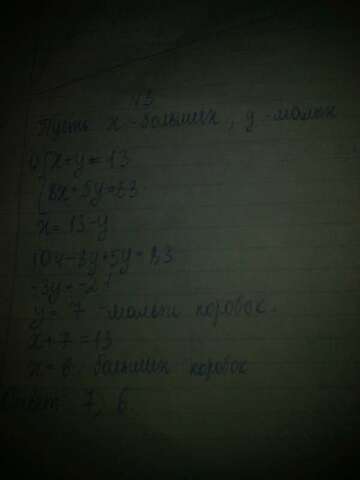 N3
Пусть x - больших, y - малых
{x+y=13
{8x+5y=83
x=13-y
104-8y+5y=83
-3y=-21
y=7 - малых коробок.
x+7=13
x=6 больших коробок
Ответ 7, 6.